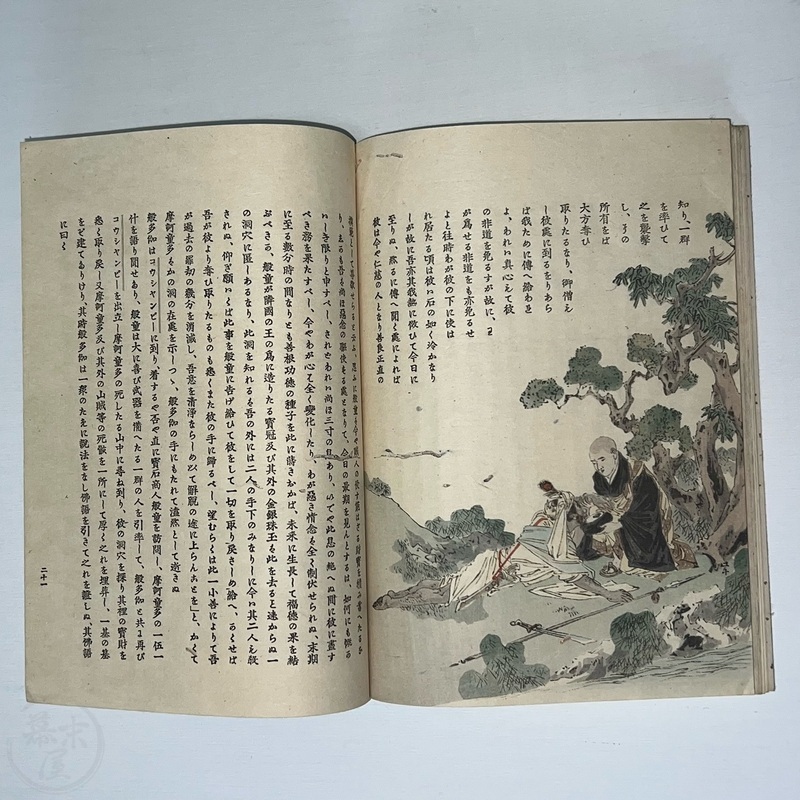 知り、一群
を率ひて
之を襲撃
し、其の
所有をば
大方奪ひ
取りたるなり、御僧え
し彼處に到るをりあら
ば我ために傳へ給わを
よ、われハ真心えて彼
の非道を免るすが故に、又
が爲せる非道をも亦免るせ
よと往時わが彼の下に使は
れ居たる頃は彼ハ石の如く冷かなり
しが故に吾亦其我熱に倣ひて今日に
至りぬ、然るに傳へ聞く處によれば
彼は今や仁慈の人となり善良正直の
り、よるも吾る尚ほ惡念の驅使をる處となりて、今日の最期を見んとするは、如何にも慨か
ハしき限りと申すべし、されどわれハ尚ほ三寸の息あり、いでや此息の絶へぬ間に彼に盡す
べき務を果たすべし、今やわが心ハ全く變化したり、わが惡き情念ハ全く制伏せられぬ、末期
に至る數分時の間なりとも善根功德の種子を此に蒔きおかば、未來に生長して福德の果を結
ぶべきる、般童が隣國の王の爲に造りたる寶冠及び其外の金銀珠玉ハ此を去ると遠からぬ一
の洞穴に匿しあるなり、此洞を知れるハ吾の外には二人の手下のみなりしに今ハ其二人も殺
されぬ、仰ぎ願いくば此事を般童に告げ給ひて彼をして一切を取り戾さしめ給へ、かくせば
吾が彼より奪ひ取りたるものも悉くまた彼の手に歸るべし、望むらくは此一小善によりて吾
が過去の罪刧の幾分を消滅し、吾意を清淨ならしめ以て解脱の途に上らんことを」と、かくて
摩阿童多ハかの洞の在處を示しつゝ、般多伽の手にもたれて溘然として逝きぬ
般多伽はコウシャンビーに到り着するや否や直に寶石商人般童を訪問し、摩阿童多の一伍一
什を語り聞せあり、般童は大に喜び武器を備へたる一群の人を引率して、般多伽と共に再び
コウシャンビーを出立し摩阿童多の死したる山中に尋ね到り、彼の洞穴を探り其裡の寶財を
悉く取り戾し、又摩阿童多及び其外の山賊等の死骸を一所にして厚く之れを埋葬し、一基の墓
をど建てありけり、其時般多伽は一衆のたえに說法をなし佛語を引きて之れを證しぬ、其佛語
に曰く
二十一